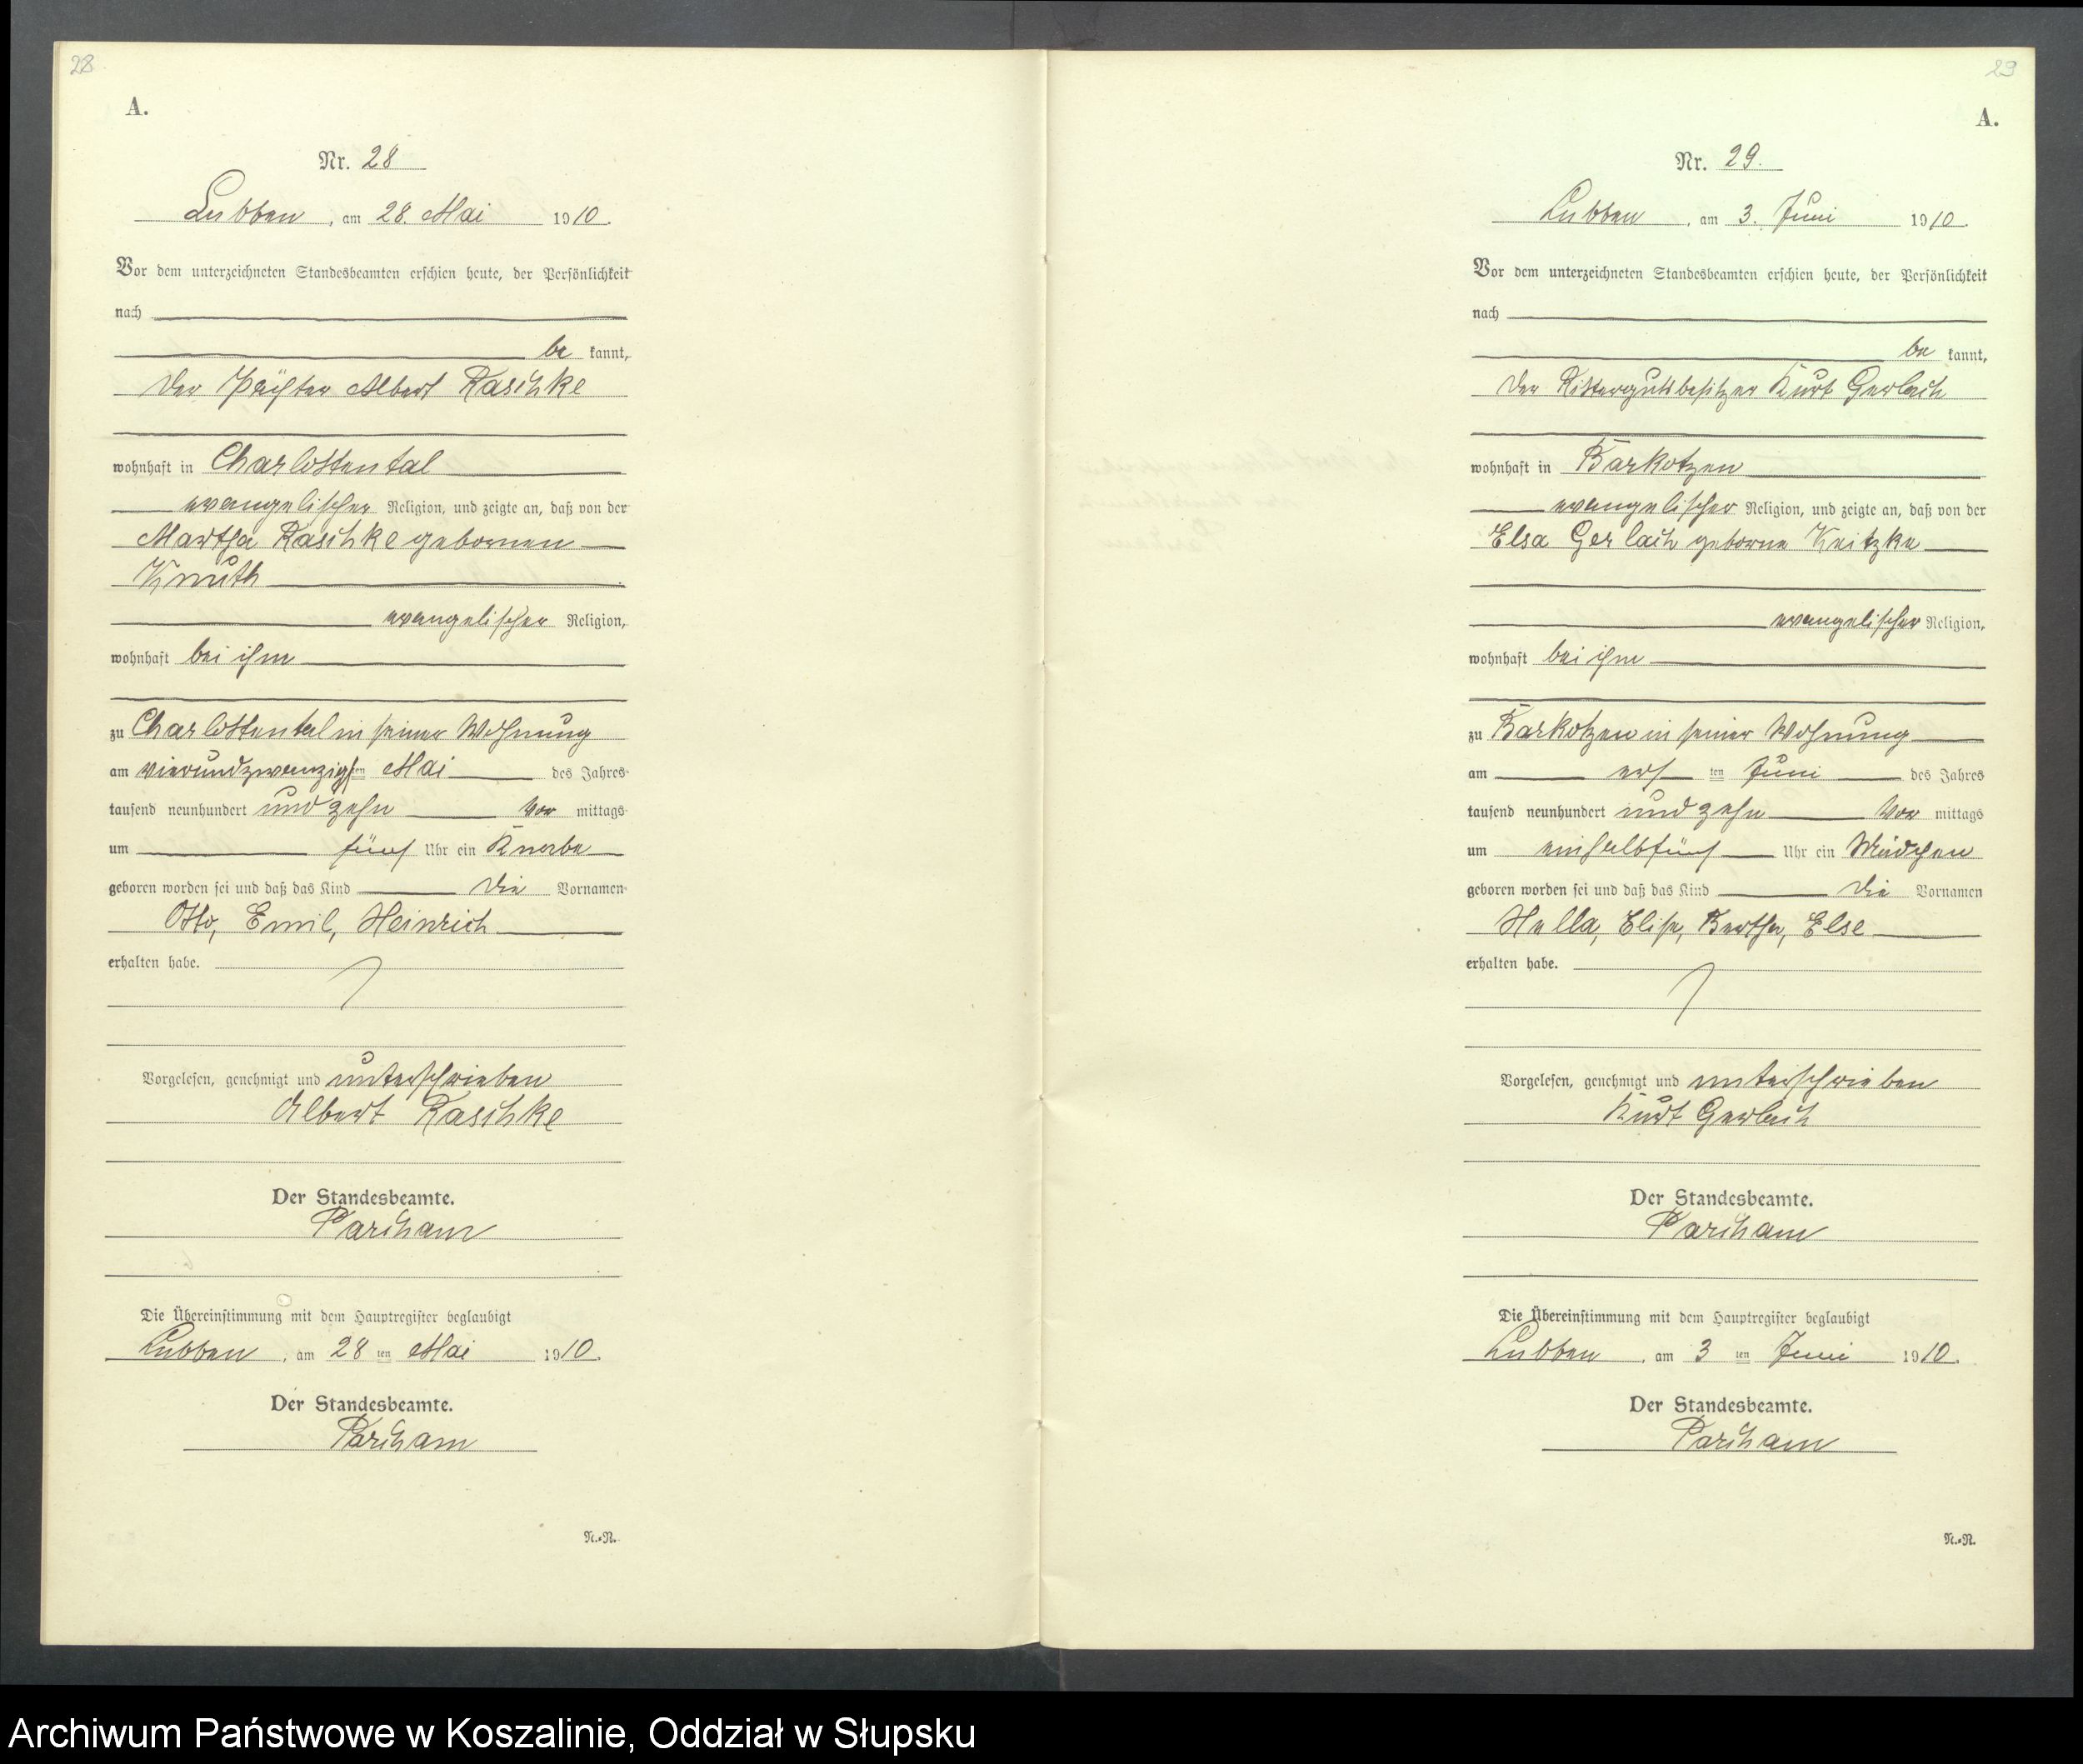 28
A.
Nr. 28
Lubben, am 28. Mai 1910.
Vor dem unterzeichneten Standesbeamten erschien heute, der Persönlichkeit
nach
be kannt,
der Pächter Albert Raschke
wohnhaft in Charlottental
evangelischer Religion, und zeigte an, daß von der
Martha Raschke gebornen
Knuth
evangelischer Religion,
wohnhaft bei ihm
zu Charlottental in seiner Wohnung
am vierundzwanzigsten Mai des Jahres
tausend neunhundert und zehn Vor mittags
um fünf Uhr ein Knabe
geboren worden sei und daß das Kind die Vornamen
Otto, Emil, Heinrich
erhalten habe.
Vorgelesen, genehmigt und unterschrieben
Albert Raschke
Der Standesbeamte.
Parcham
Die Übereinstimmung mit dem Hauptregister beglaubigt
Lubben, am 28 ten Mai 1910.
Der Standesbeamte.
Parcham
N.=N.
29
A.
Nr. 29.
Lubben, am 3. Juni 1910.
Vor dem unterzeichneten Standesbeamten erschien heute, der Persönlichkeit
nach
be kannt,
der Rittergutsbesitzer Kurt Gerlach
wohnhaft in Barkotzen
evangelischer Religion, und zeigte an, daß von der
Elsa Gerlach geborne Keitzke
evangelischer Religion,
wohnhaft bei ihm
zu Barkotzen in seiner Wohnung
am ers ten Juni des Jahres
tausend neunhundert und zehn Vor mittags
um einhalbfünf Uhr ein Mädchen
geboren worden sei und daß das Kind die Vornamen
Hella, Elise, Bertha, Else
erhalten habe.
Vorgelesen, genehmigt und unterschrieben
Kurt Gerlach
Der Standesbeamte.
Parcham
Die Übereinstimmung mit dem Hauptregister beglaubigt
Lubben, am 3 ten Juni 1910.
Der Standesbeamte.
Parcham
N.=N.
Archiwum Państwowe w Koszalinie, Oddział w Słupsku